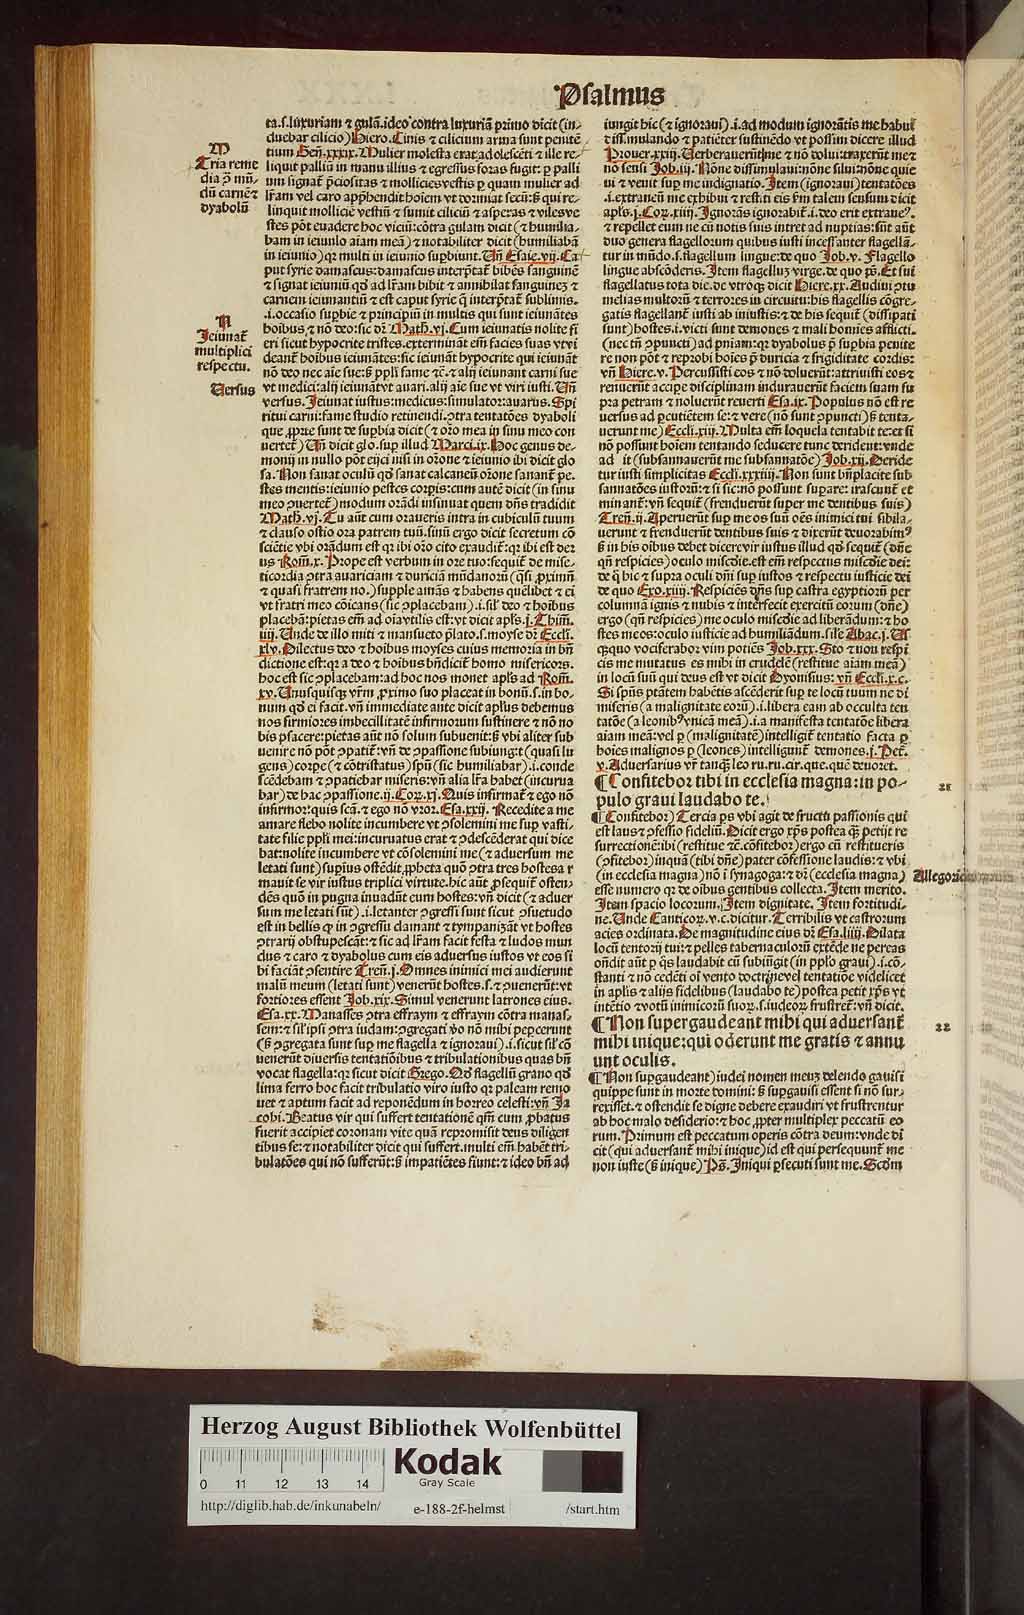 Psalmus
ta.s.luxuriam ⁊ gulã.ideo contra luxuriã primo dicit (in-
duebar cilicio) Hiero. Cinis ⁊ cilicium arma sunt penitẽ
tium Geñ.xxxix. Mulier molesta erat adolescẽti ⁊ ille re-
liquit palliũ in manu illius ⁊ egressus foras fugit: ꝑ palli
um signat̃ p̃ciositas ⁊ mollicies vestis ꝑ quam mulier ad
lr̃am vel caro app̃hendit hoiem vt dormiat secũ: sꝫ qui re-
linquit molliciẽ vestiũ ⁊ sumit ciliciũ ⁊ asperas ⁊ viles ve
stes põt euadere hoc viciũ: cõtra gulam dicit (⁊ humilia-
bam in ieiunio aiam meã) ⁊ notabiliter dicit (humiliabã
in ieiunio) qꝛ multi in ieiunio supbiunt. Uñ Esaie.vij. Ca
put syrie damascus: damascus interp̃tat̃ bibẽs sanguinẽ
⁊ signat ieiuniũ qd̃ ad lr̃am bibit ⁊ annihilat sanguinẽ ⁊
carnem ieiunantiũ ⁊ est caput syrie q̃ interp̃tat̃ sublimis.
.i.occasio supbie ⁊ principiũ in multis qui sunt ieiunãtes
hoibus ⁊ nõ deo: sic dr̃ Math.vj. Cum ieiunatis nolite fi
eri sicut hypocrite tristes. exterminãt em̃ facies suas vt vi
deant̃ hoibus ieiunãtes: sic ieiunãt hypocrite qui ieiunãt
nõ deo nec aie sue: sꝫ ppli fame ⁊c̃. ⁊ alij ieiunant carni sue
vt medici: alij ieiunãt vt auari. alij aie sue vt viri iusti. Uñ
versus. Jeiunat iustus: medicus: simulator: auarus. Spi
ritui carni: fame studio retinendi. ꝯtra tentatões dyaboli
que ꝓprie sunt de supbia dicit (⁊ or̃o mea in sinu meo con
uertet̃) Uñ dicit glo. sup illud Marci.ix. Hoc genus de-
monij in nullo põt eijci nisi in or̃one ⁊ ieiunio ibi dicit glo
sa. Non sanat oculũ qd̃ sanat calcaneũ or̃one sanant̃ pe-
stes mentis: ieiunio pestes corpis: cum autẽ dicit (in sinu
meo ꝯuertet̃) modum orãdi insinuat quem dñs tradidit
Math.vj. Tu aũt cum oraueris intra in cubiculũ tuum
⁊ clauso ostio ora patrem tuũ. sinũ ergo dicit secretum cõ
sciẽtie vbi orãdum est qꝛ ibi or̃o cito exaudit̃: qꝛ ibi est de⁹
us Rom̃.x. Prope est verbum in ore tuo: sequit̃ de mise-
ricordia ꝯtra auariciam ⁊ duriciã mũdanorũ (q̃si ꝓximũ
⁊ quasi fratrem no.) supple amãs ⁊ habens quelibet ⁊ ei
vt fratri meo cõicans (sic ꝯplacebam).i.sil̃ deo ⁊ hoibus
placebã: pietas em̃ ad oia vtilis est: vt dicit apls̃.j. Thim̃.
iiij. Unde de illo miti ⁊ mansueto p̃lato .s. moyse dr̃ Eccli.
xlv. Dilectus deo ⁊ hoibus moyses cuius memoria in bñ
dictione est: qꝛ a deo ⁊ hoibus bñdicit̃ homo misericors.
hoc est sic ꝯplacebam: ad hoc nos monet apls̃ ad Rom̃.
xv. Unusquisqꝫ vr̃m ꝓximo suo placeat in bonũ .s. in bo-
num qd̃ ei facit. vñ immediate ante dicit aplus debemus
nos firmiores imbecillitatẽ infirmorum sustinere ⁊ nõ no
bis placere: pietas aũt nõ solum subuenit: sꝫ vbi aliter sub
uenire nõ põt ꝯpatit̃: vñ de ꝯpassione subiungit (quasi lu
gens) corpe (⁊ cõtristatus) spũ (sic humiliabar).i.conde
scẽdebam ⁊ ꝯpatiebar miseris: vñ alia lr̃a habet (incurua
bar) de hac ꝯpassione.ij.Coꝛ.xj. Quis infirmat̃ ⁊ ego nõ
infirmor: quis scã. ⁊ ego nõ vror. Esa.xxij. Recedite a me
amare flebo nolite incumbere vt ꝯsolemini me sup vasti-
tate filie ppli mei: incuruatus erat ⁊ ꝯdescẽderat qui dice
bat: nolite incumbere vt cõsolemini me (⁊ aduersum me
letati sunt) supius ostẽdit ꝓpheta quõ ꝯtra tres hostes ar
mauit se vir iustus triplici virtute. hic aũt ꝓsequit̃ osten-
dẽs quõ in pugna inuadũt eum hostes: vñ dicit (⁊ aduer
sum me letati sũt).i.letanter ꝯgressi sunt sicut ꝯsuetudo
est in bellis qꝫ in ꝯgressu clamant ⁊ tympanizãt vt hostes
ꝯtrarij obstupescãt: ⁊ sic ad lr̃am facit festa ⁊ ludos mun
dus ⁊ caro ⁊ dyabolus cum eis aduersus iustos vt eos si
bi faciãt ꝯsentire Treñ.j. Omnes inimici mei audierunt
malũ meum (letati sunt) venerũt hostes .s. ⁊ ꝯuenerũt: vt
fortiores essent Job.xix. Simul venerunt latrones eius.
Esa.ix. Manasses ꝯtra effraym ⁊ effraym cõtra manas
sem: ⁊ sil̃ ipsi ꝯtra iudam: ꝯgregati v̾o nõ mihi pepcerunt
(sꝫ ꝯgregata sunt sup me flagella ⁊ ignoraui).i.sicut sil̃ cõ
uenerũt diuersis tentatiõibus ⁊ tribulationibus quas bñ
vocat flagella: qꝛ sicut dicit Grego. Qd̃ flagellũ grano qd̃
lima ferro hoc facit tribulatio viro iusto qꝛ paleam remo
uet ⁊ aptum facit ad reponẽdum in horreo celesti: vñ Ja
cobi. Beatus vir qui suffert tentationẽ qm̃ cum ꝓbatus
fuerit accipiet coronam vite quã repromisit deus diligen
tibus se: ⁊ notabiliter dicit qui suffert. multi em̃ habẽt tri-
bulatões qui nõ sufferũt: sꝫ impatiẽtes fiunt: ⁊ ideo bñ ad
M
Tria reme
dia ꝯ mũ-
dũ carnẽ ⁊
dyabolũ
N
Jeiunat̃
multiplici
respectu.
Versus
iungit hic (⁊ ignoraui).i.ad modum ignorãtis me habui
dissimulando ⁊ patiẽter sustinẽdo vt possim dicere illud
Prouer.xxiij. Uerberauerũt me ⁊ nõ dolui: traxerũt me ⁊
nõ sensi Job.iij. Nõne dissimulaui: nõne silui: nõne quie
ui ⁊ venit sup me indignatio. Item (ignoraui) tentatões
.i.extraneũ me exhibui ⁊ resti: ti eis fm̃ talem sensum dicit
apls̃.j.Coꝛ.xiiij. Ignorãs ignorabit̃.i.deo erit extrane⁹.
⁊ repellet eum ne cũ notis suis intret ad nuptias: sũt aũt
duo genera flagellorum quibus iusti incessanter flagellã-
tur in mũdo .s. flagellum lingue: de quo Job.v. Flagello
lingue abscõderis. Item flagellũ virge. de quo ps̃. Et fui
flagellatus tota die. de vtroqꝫ dicit Hiere.xx. Audiui ꝯtu
melias multorũ ⁊ terrores in circuitu: his flagellis cõgre-
gatis flagellant̃ iusti ab iniustis: ⁊ de his sequit̃ (dissipati
sunt) hostes.i.victi sunt demones ⁊ mali homies afflicti.
(nec tñ ꝯpuncti) ad pñiam: qꝛ dyabolus ꝑ supbia penite
re non põt ⁊ reprobi hoies ꝑ duricia ⁊ frigiditate cordis:
vñ Hiere.v. Percussisti eos ⁊ nõ doluerũt: attriuisti eos ⁊
renuerũt accipe disciplinam indurauerũt faciem suam su
pra petram ⁊ noluerũt reuerti Esa.ix. Populus nõ est re
uersus ad pcutiẽtem se: ⁊ vere (nõ sunt ꝯpuncti) sꝫ tenta-
uerunt me) Eccli.xiij. Multa em̃ loquela tentabit te: et si
nõ possunt hoiem tentando seducere tunc derident: vnde
ad it (subsannauerũt me subsannatõe) Job.xij. Deride
tur iusti simplicitas Eccli.xxxiiij. Non sunt bñplacite sub
sannatões iustorũ: ⁊ si sic: nõ possũt supare: irascunt̃ et
minant̃: vñ sequit̃ (frenduerũt super me dentibus suis)
Treñ.ij. Aperuerũt sup me os suũ oẽs inimici tui sibila-
uerunt ⁊ frenduerũt dentibus suis ⁊ dixerũt deuorabim⁹
sꝫ in his oibus debet dicere vir iustus illud qd̃ sequit̃ (dñe
qñ respicies) oculo miscdie. est em̃ respectus miscdie dei:
de q̃ hic ⁊ supra oculi dñi sup iustos ⁊ respectu iusticie dei
de quo Exo.xiiij. Respiciẽs dñs sup castra egyptiorũ per
columnã ignis ⁊ nubis ⁊ interfecit exercitũ eorum (dñe)
ergo (qñ respicies) me oculo miscdie ad liberãdum: ⁊ ho
stes meos: oculo iusticie ad humiliãdum. sil̃e Abac.j. Us
qꝫquo vociferabor vim patiẽs Job.xxx. Sto ⁊ non respi
cis me mutatus es mihi in crudelẽ (restitue aiam meã)
in locũ suũ qui deus est vt dicit Dyonisius: vñ Eccli.x.c.
Si spũs ptãtem habẽtis ascẽderit sup te locũ tuum ne di
miseris (a malignitate eorũ).i.libera eam ab occulta ten
tatõe (a leonib⁹ vnicã meã).i.a manifesta tentatõe libera
aiam meã: vel ꝑ (malignitatẽ) intelligit̃ tentatio facta ꝑ
hoies malignos ꝑ (leones) intelligunt̃ demones.j. Pet̃.
v. Aduersarius vr̃ tanqꝫ leo ru.cir.que.quẽ deuoret.
¶ Confitebor tibi in ecclesia magna: in po-
pulo graui laudabo te.
¶ Confitebor) Tercia ps vbi agit de fructu passionis qui
est laus ⁊ ꝯfessio fidelũ. Dicit ergo xp̃s postea qꝫ petijt re
surrectionẽ: ibi (restitue ⁊c̃. cõfitebor) ergo cũ restitueris
(ꝯfitebor) inquã (tibi dñe) pater cõfessione laudis: ⁊ vbi
(in ecclesia magna) nõ ĩ synagoga: ⁊ dr̃ (ecclesia magna)
esse numero qꝛ de oibus gentibus collecta. Item merito.
Item spacio locorum. Item dignitate. Item fortitudi-
ne. Unde Canticoꝝ.v.c. dicitur. Terribilis vt castrorum
acies ordinata. De magnitudine eius dr̃ Esa.liiij. Dilata
locũ tentorij tui: ⁊ pelles tabernaculorũ extẽde ne pereas
oñdit aũt ꝑ qs̃ laudabit cũ subiũgit (in pplo graui).i.cõ-
stanti ⁊ nõ cedẽti oĩ vento doctrine vel tentatiõe videlicet
in aplis ⁊ alijs fidelibus (laudabo te) postea petit xp̃s vt
intẽtio ⁊ votũ inimicorũ suoꝝ .s. iudeoꝝ frustret̃: vñ dicit.
¶ Non supergaudeant mihi qui aduersant̃
mihi inique: qui oderunt me gratis ⁊ annu
unt oculis.
¶ Non supgaudeant) iudei nomen meuꝫ delendo gauisi
quippe sunt in morte domini: sꝫ supgauisi essent si nõ sur-
rexisset. ⁊ ostendit se digne debere exaudiri vt frustrentur
ab hoc malo desiderio: ⁊ hoc ꝓpter multiplex peccatũ eo
rum. Primum est peccatum operis cõtra deum: vnde di
cit (qui aduersant̃ mihi inique) id est qui persequunt̃ me
non iuste (sꝫ inique) Ps̃. Iniqui ꝑsecuti sunt me. Scdm̃
21
Allegorice
22
Herzog August Bibliothek Wolfenbüttel
0 11 12 13 14
Kodak
Gray Scale
http://diglib.hab.de/inkunabeln/ e-188-2f-helmst /start.htm